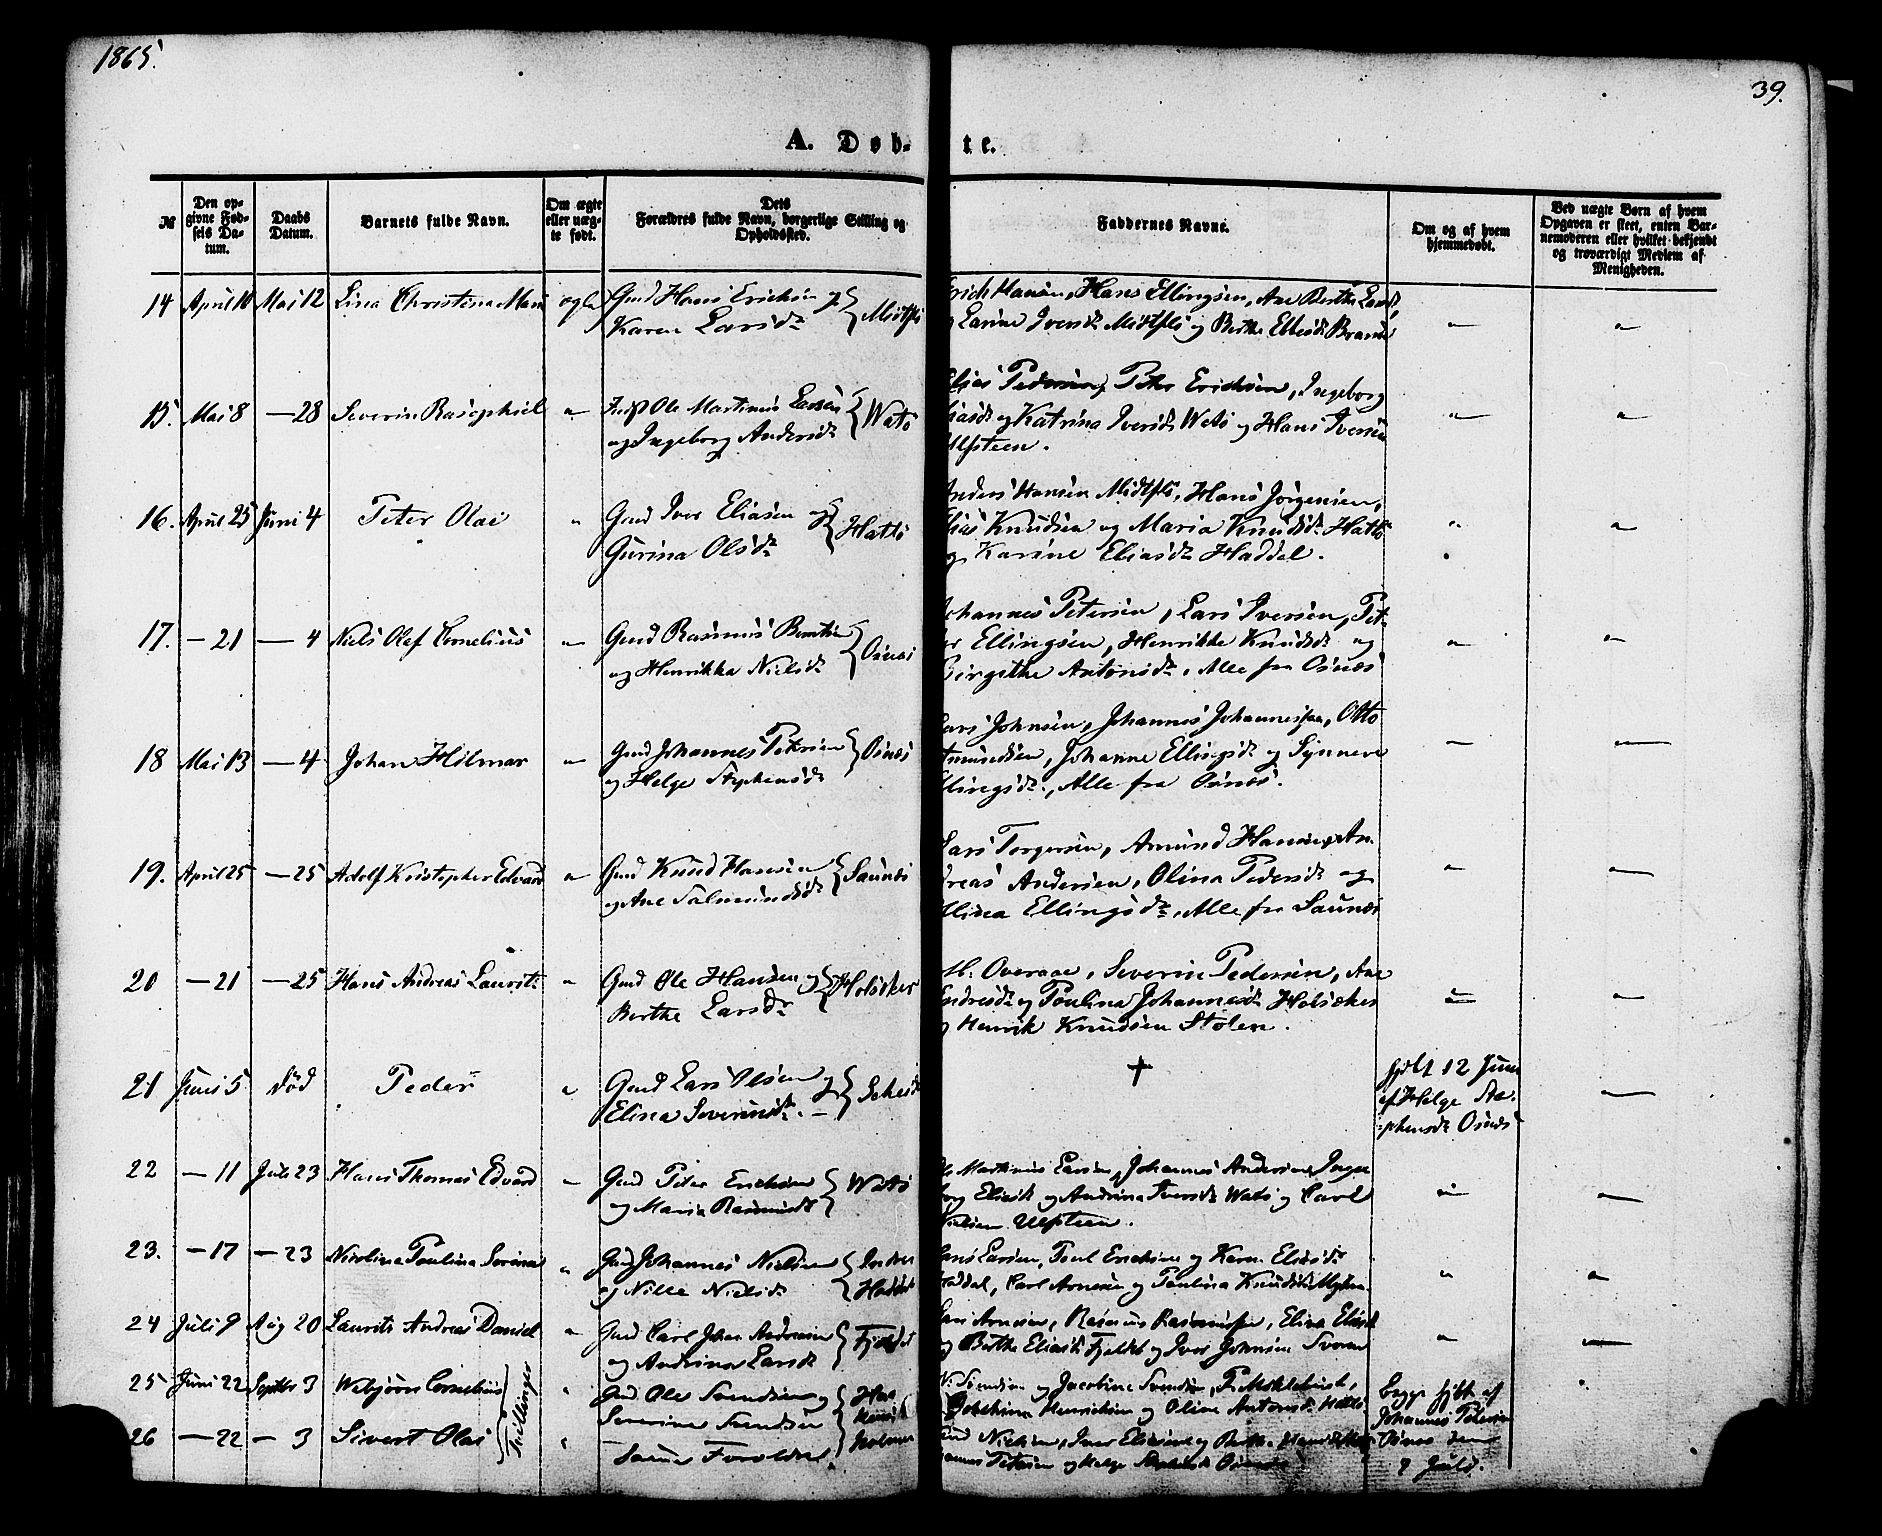 1865.
39.
A. Døb-
te.
№
Den op-
givne Fød-
sels Da-
tum.
Daabs
Datum.
Barnets fulde Navn.
Om ægte
eller uæg-
te født.
Dets
Forældres fulde Navn, borgerlige Stilling og
Opholdssted.
Faddernes Navne.
Om og af hvem
hjemmedøbt.
Ved uægte Børn af hvem
Opgaven er skeet, enten Bar-
nemoderen eller hvilket bekjendt
og troværdigt Medlem af
Menigheden.
14 April 10 Mai 12 Lina Christina Marie ægte Gmd Hans Ericksen og
Karen Larsdr
Erich Hansen, Hans Ellingsen, Ane Berthe Larsdr,
og Larine Iversdr Midtflø og Berthe Ellesdr Brande
15. Mai 8 — 28 Severin Rasephiel " Ole Martinus Larsen Watø
og Ingeborg Andersdr
Elias Pedersen, Peter Erichsen, Ingeborg
Eliasdr og Katrina Iversdr Watø og Hans Iversen
Ulfsteen.
16. April 25 Juni 4 Peter Olai " Gmd Iver Eliasen og Hattø
Gurina Olsdr
Anders Hansen Midtflø, Hans Jørgensen,
Elias Knudsen og Maria Knudsdr Hattø
og Karine Eliasdr Haddal.
17. — 21 — 4 Niels Olaf Cornelius " Gmd Rasmus Berntsen Osnæs
og Henrikka Nielsdr
Johannes Petersen, Lars Iversen, Pet-
er Ellingsen, Henrikke Knudsdr og
Birgithe Antonsdr, Alle fra Osnæs
18 Mai 13 — 4 Johan Hilmar " Gmd Johannes Petersen Osnæs
og Helge Stephensdr
Lars Johnsen, Johannes Johannessen, Otto
Amundsen, Johanne Ellingsdr og Synneve
Ellingsdr, Alle fra Osnæs.
19. April 25 — 25 Adolf Kristopher Edvard " Gmd Knud Hansen Saunæs
og Ane Salmundsdr
Lars Torgersen, Amund Hansen, An-
dreas Andersen, Olina Pedersdr og
Elisea Ellingsdr, Alle fra Saunæs
20 — 21 — 25 Hans Andreas Laurits " Gmd Ole Hansen og Holsæker
Berthe Larsdr
H. Overaae, Severin Pedersen, Ane
Andresdr og Paulina Johannesdr Holsæker
og Henrik Knudsen Stolen.
21 Juni 5 død Peder " Gmd Lars Olsen og
Elisea Severinsdr. —
†
hjdbt 12 Juni
af Helge Ste-
phensdr Osnæs
22 — 11 Juli 23 Hans Thomas Edvard " Gmd Peter Erichsen Watø
og Maria Rasmusdr
Ole Martinus Larsen, Johannes Andersen, Inge-
borg Eliasdr og Andrina Iversdr Watø og Carl
Nielsen Ulfsteen.
23. — 17 — 23 Nicolina Paulina Sorina " Gmd Johannes Nielsen Indre
og Nille Nielsdr Haddal
Hans Larsen, Poul Erichsen og Karen Eliasdr
Haddal, Carl Arnesen og Paulina Knudsdr
24 Juli 9 Aug 20 Laurits Andreas Daniel " Gmd Carl Johan Andreasen Fjeldet
og Andrina Larsdr
Lars Arnesen, Rasmus Rasmussen, Elina Eliasdr
og Berthe Eliasdr Fjeldet og Iver Johnsen Svoren
25 Juni 22 Septbr 3 Webjörn Cornelius " Gmd Ole Svendsen og
Severine Svendsen
Svendsen og Jacobine Svendsen, P. Moldskred,
Henrichsen og Oline Antonsdr Hattø
Begge hjdbt af
Johannes Petersen
Osnæs den
9 Juli.
26 — 22 — 3 Sivert Olai Tvillinger Samme Forældre. Holmen
Nielsen, Iver Eliasen og Berthe
Johannes Petersen og Helge Osnæs